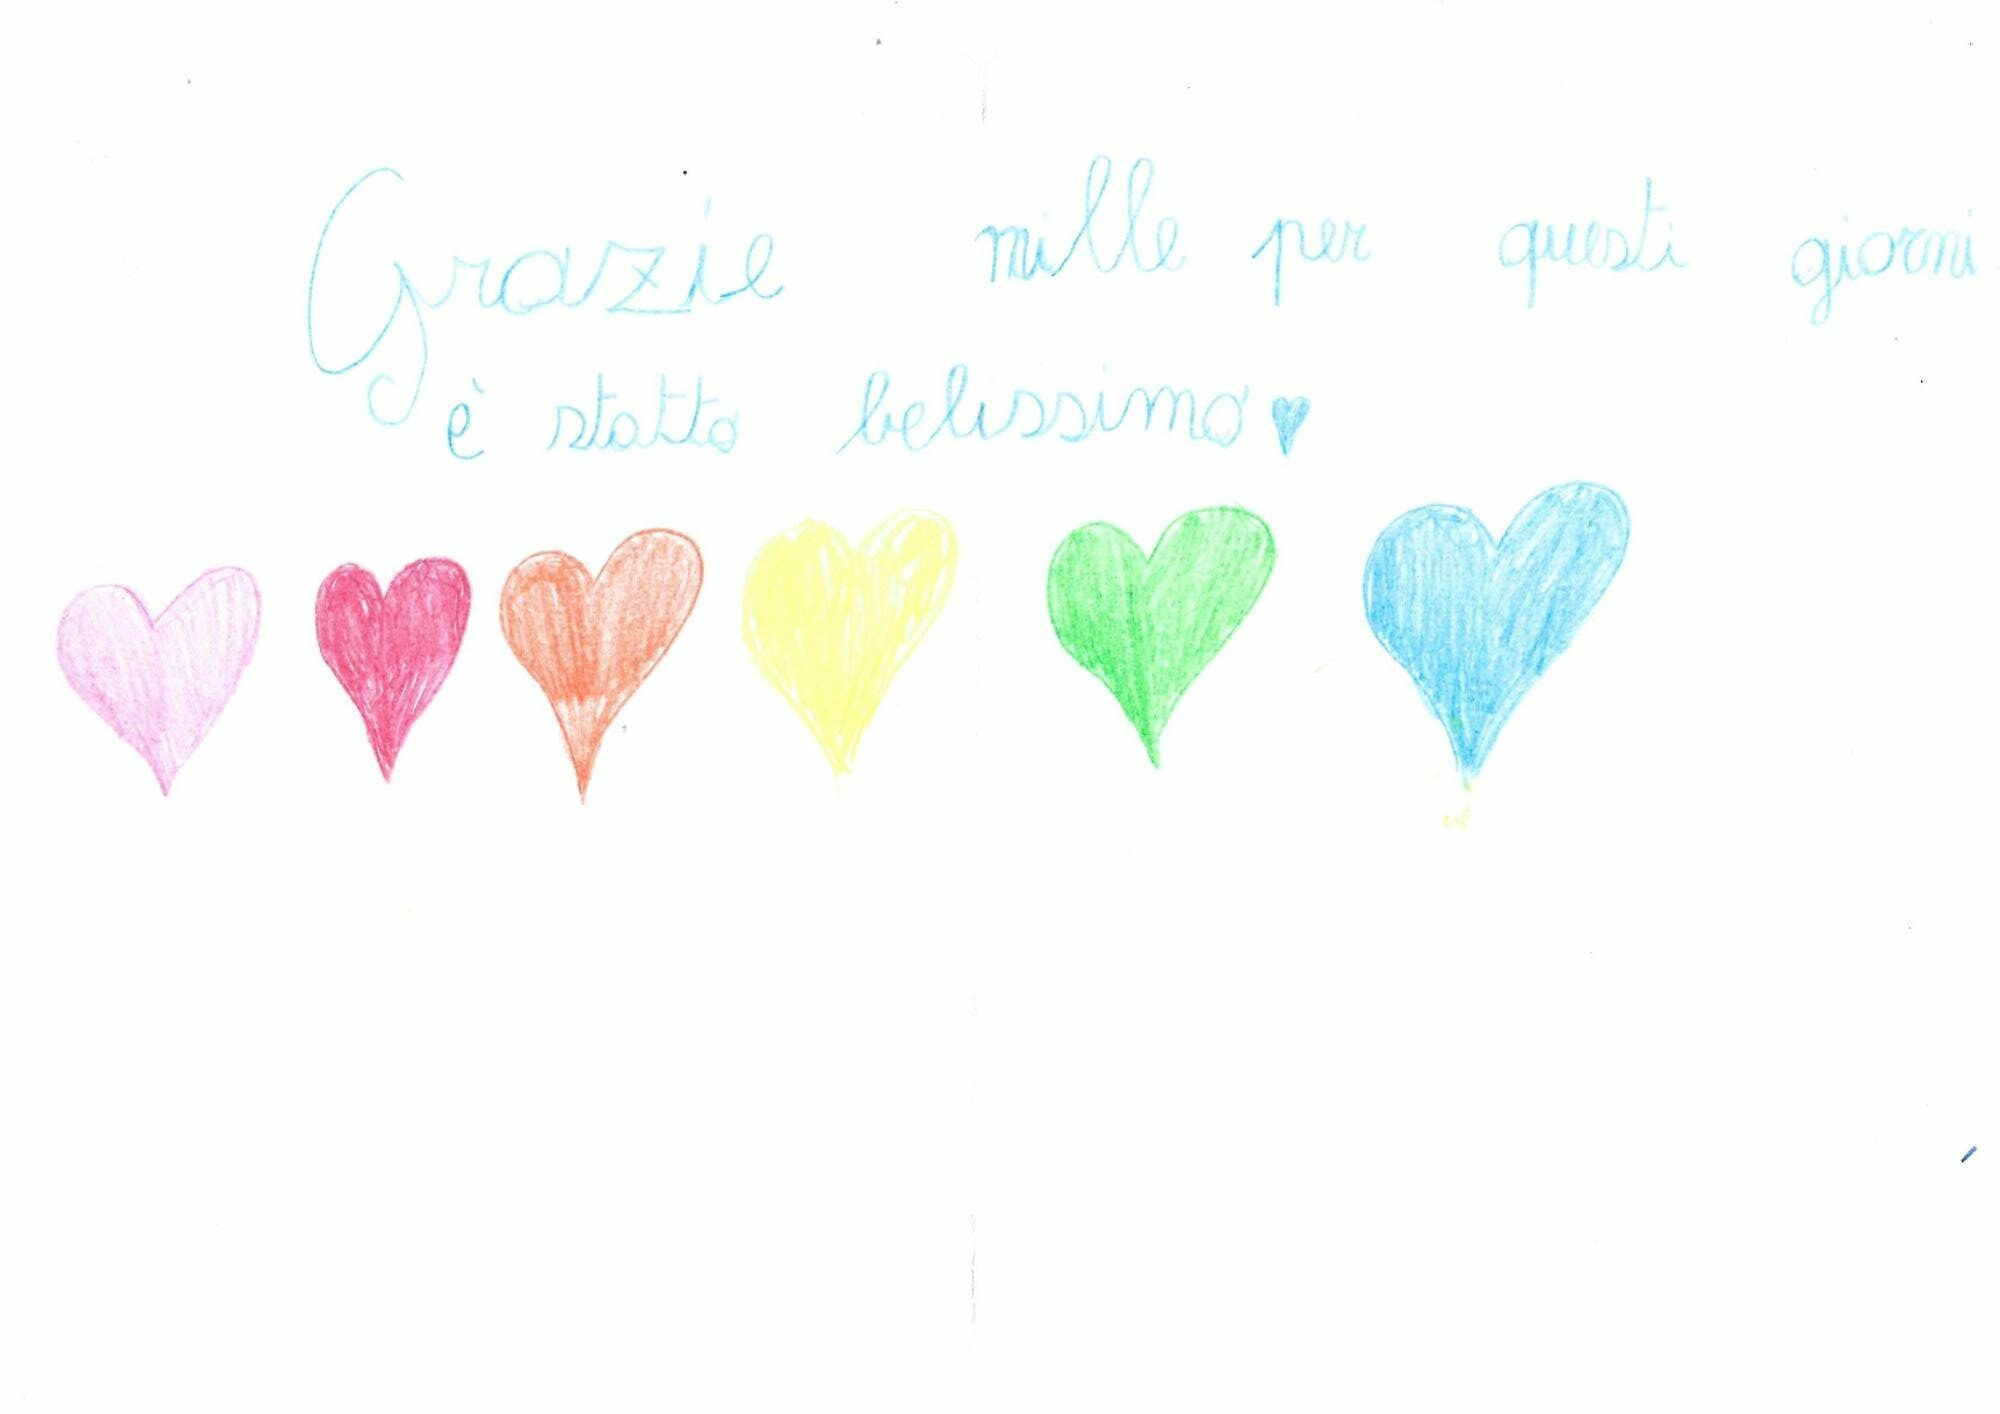 Grazie mille per questi giorni.
è statto belissimo